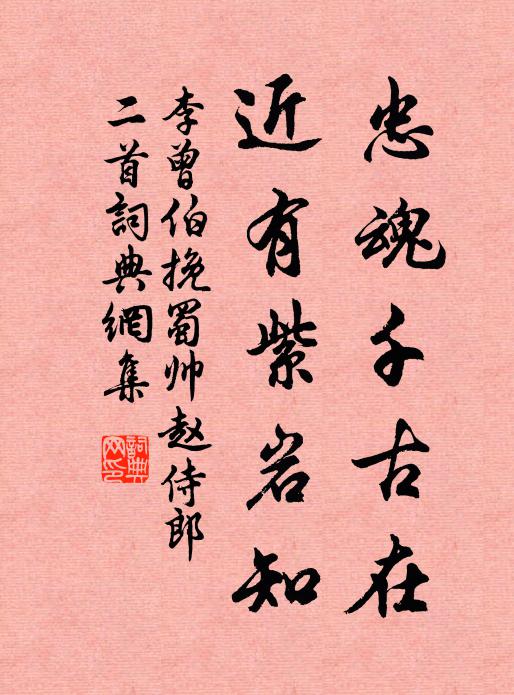 忠魂千古在
近有紫岩知
李曾伯挽蜀帅赵侍郎
二首詞典網集
詞典网印